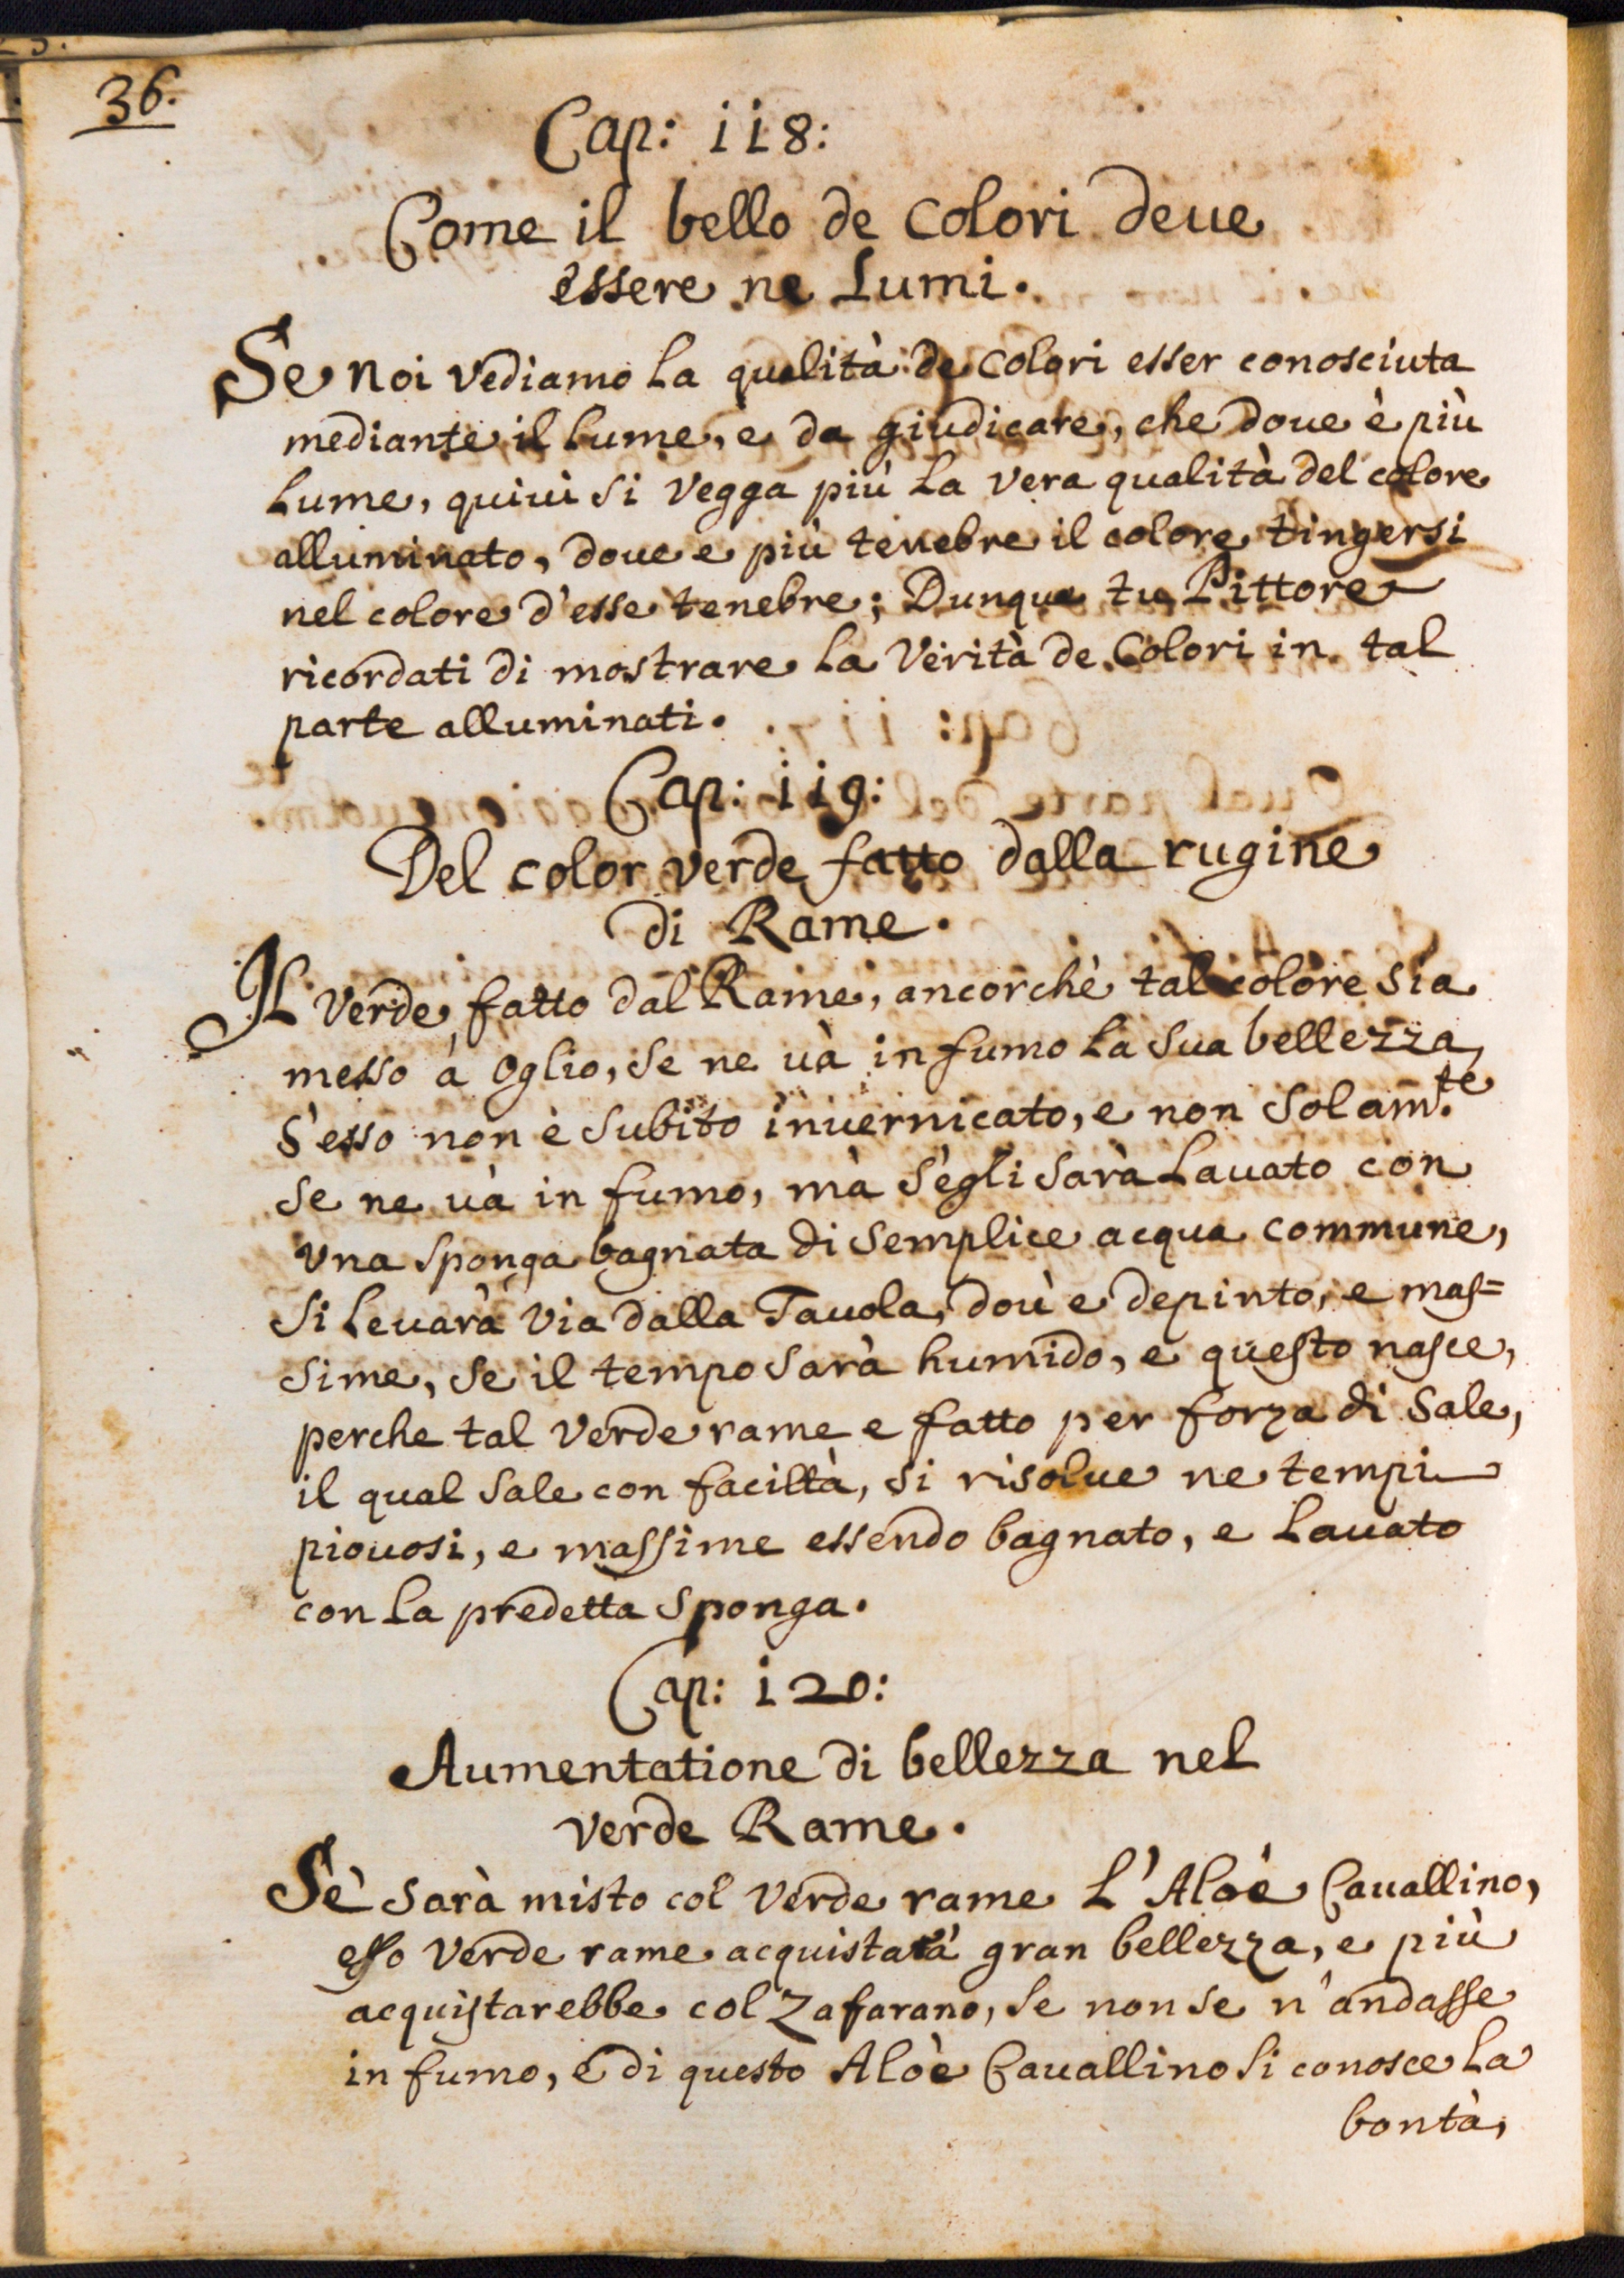 36.
Cap: 118:
Come il bello de colori deue
essere ne Lumi.
Se noi vediamo la qualità de colori esser conosciuta
mediante il lume, e da giudicare, che doue è più
lume, quiui si vegga più la vera qualità del colore
alluminato, doue e più tenebre il colore tingersi
nel colore d'esse tenebre; Dunque tu Pittore
ricordati di mostrare la Verità de Colori in tal
parte alluminati.
Cap: 119:
Del color verde fatto dalla rugine
di Rame.
Il Verde fatto dal Rame, ancorchè tal colore sia
messo à Oglio, se ne uà in fumo la sua bellezza,
s'esso non è subito inuernicato, e non solam.te
se ne uà in fumo, mà s'egli sarà lauato con
una sponga bagnata di semplice acqua commune,
si leuarà via dalla Tauola, dou'e depinto, e mas=
sime, se il tempo sarà humido, e questo nasce,
perche tal verde rame e fatto per forza di sale,
il qual sale con faciltà, si risolue ne tempi
piouosi, e massime essendo bagnato, e lauato
con la predetta sponga.
Cap: 120:
Aumentatione di bellezza nel
verde Rame.
Sè sarà misto col verde rame l'Aloè Cauallino,
esso verde rame acquistarà gran bellezza, e più
acquistarebbe col Zafarano, se non se n'andasse
in fumo, e di questo Aloè Cauallino si conosce la
bontà,